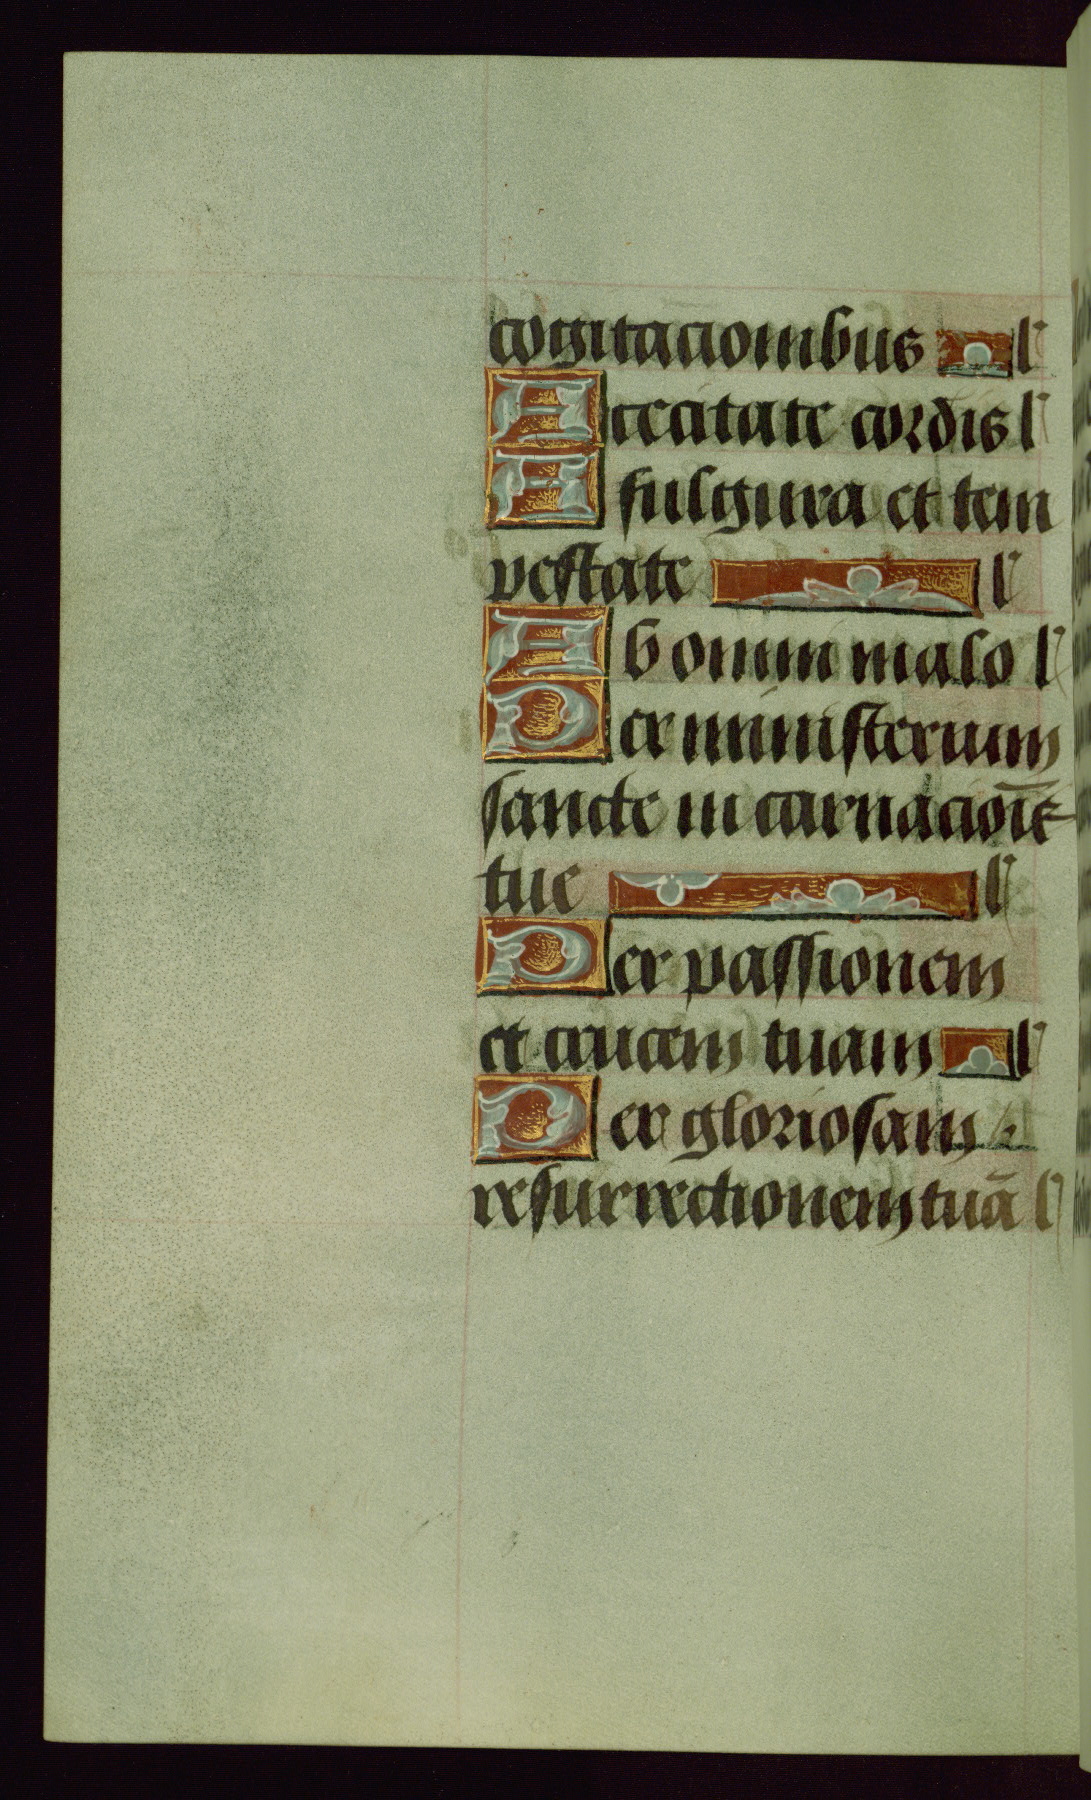 cogitacionibus l'
A cecitate cordis l'
A fulgura et tem
pestate l'
Ab omni malo l'
Per ministerium
sancte in carnacioīs
tue l'
Per passionem
et crucem tuam l'
Per gloriosam
resurrectionem tuā l'